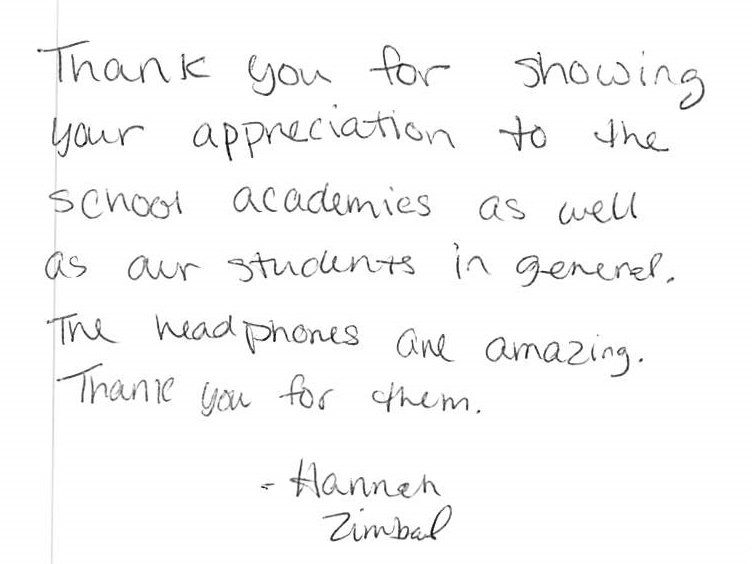 Thank you for showing
your appreciation to the
school academies as well
as our students in general.
The headphones are amazing.
Thank you for them.
- Hannah
Zimbal